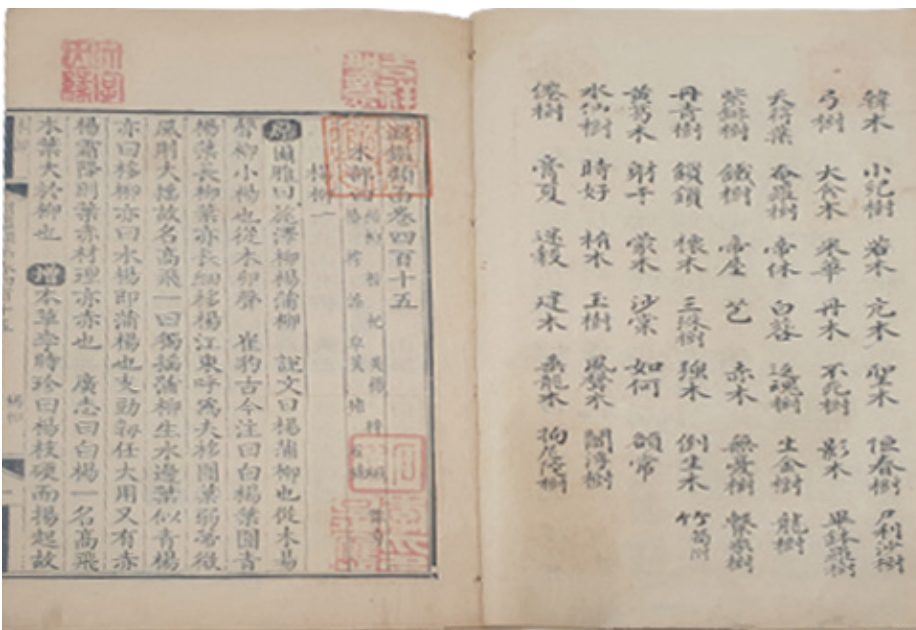 韓木 若木 元木 聖木 恒春樹 尸利沙樹
弓樹 大食木 采華 丹木 不死樹 影木 畢鉢羅樹
天符葉 帝休 白䓘 返魂樹 生金樹 龍樹
鐵樹 帝屋 芑 赤木 無憂樹
丹青樹 鎖鎖 懷木 三珠樹 強木 倒生木 竹 筍附
黃葛木 射干 蒙木 沙棠 如何
水仙樹 時好 玉樹 風聲木 閻浮樹
僊樹 膏夏 迷穀 建木 垂龍木
淵鑑類函卷四百十五
木部四
楊柳一
爾雅曰旄澤柳楊蒲柳 說文曰楊蒲柳也從木昜
聲柳小楊也從木卯聲 崔豹古今注曰白楊葉圓青
楊葉長柳葉亦長細栘楊江東呼爲夫栘圓葉弱蒂微
風則大搖故名高飛一曰獨搖蒲柳生水邊葉似青楊
亦曰栘柳亦曰水楊即蒲楊也支勁韌任大用又有赤
楊霜降則葉赤材理亦赤也 廣志曰白楊一名高飛
木葉大於柳也 增 本草李時珍曰楊枝硬而揚起故